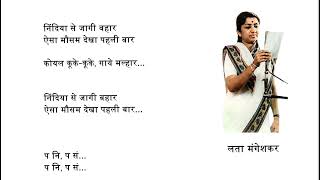 निंदिया से जागी बहार
ऐसा मौसम देखा पहली बार
कोयल कूके-कूके, गाये मल्हार...
निंदिया से जागी बहार
ऐसा मौसम देखा पहली बार
प नि, प सं...
प नि, प सं...
लता मंगेशकर